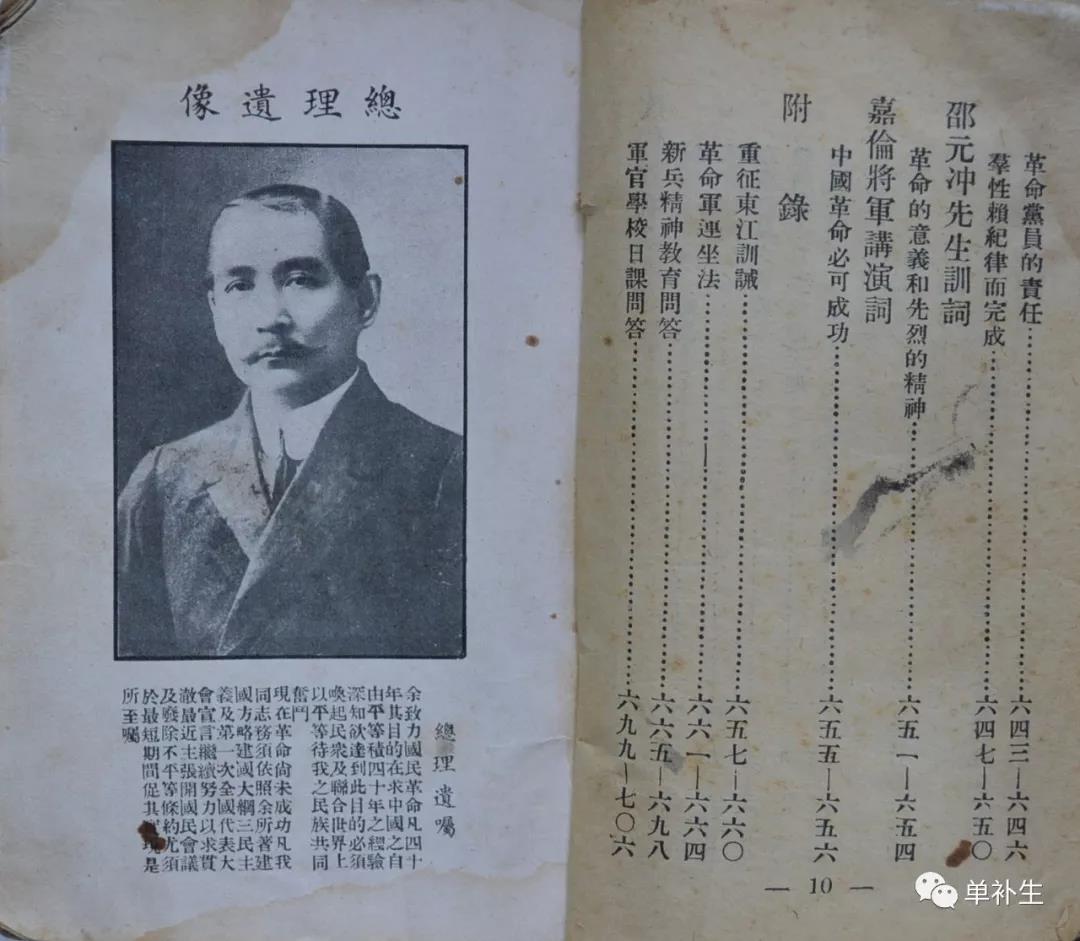 革命黨員的責任……六四三—六四六
羣性賴紀律而完成……六四七—六五〇
邵元冲先生訓詞
革命的意義和先烈的精神……六五一—六五四
嘉倫將軍講演詞
中國革命必可成功……六五五—六五六
附錄
重征東江訓誡……六五七—六六〇
革命軍連坐法……六六一—六六四
新兵精神教育問答……六六五—六九八
軍官學校日課問答……六九九—七〇六
— 10 —
總理遺像
總理遺囑
余致力國民革命凡四十
年其目的在求中國之自
由平等積四十年之經驗
深知欲達到此目的必須
喚起民衆及聯合世界上
以平等待我之民族共同
奮鬥
現在革命尚未成功凡我
同志務須依照余所著建
國方略建國大綱三民主
義及第一次全國代表大
會宣言繼續努力以求貫
澈最近主張開國民會議
及廢除不平等條約尤須
於最短期間促其實現是
所至囑
单补生